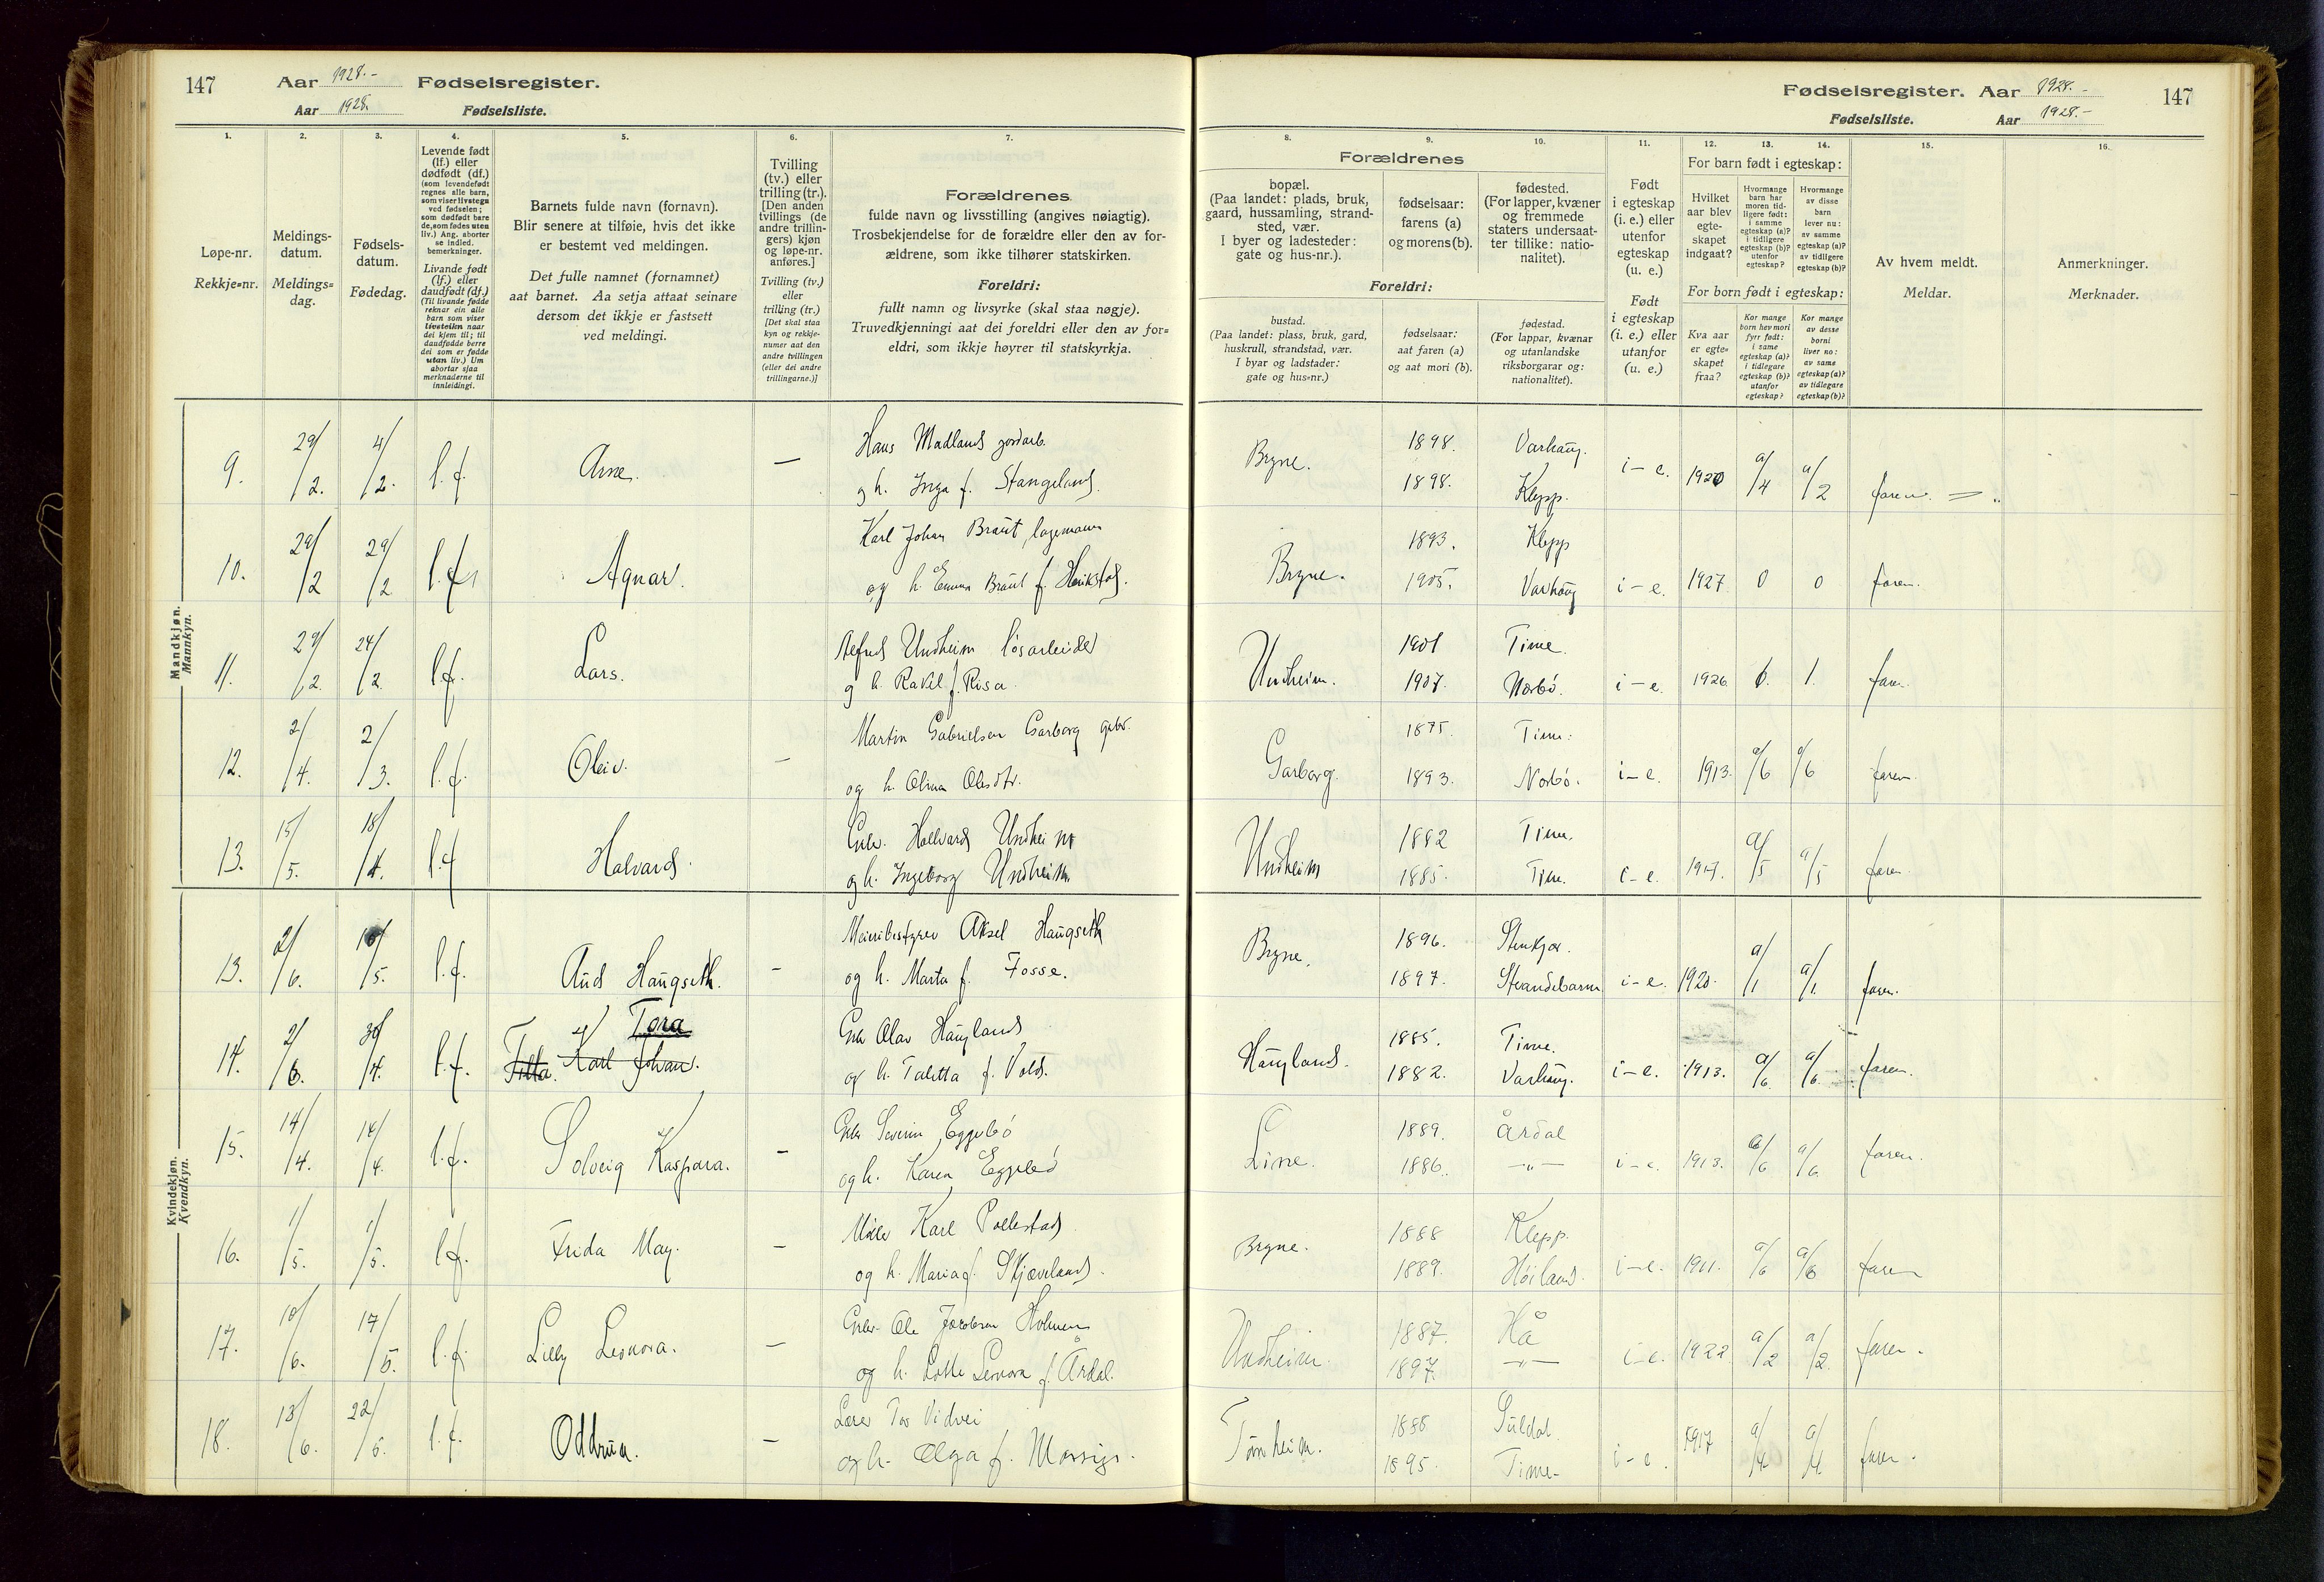 147
Aar 1928.-
Fødselsregister.
Aar 1928.
Fødselsliste.
1.
2.
3.
4.
5.
6.
7.
Løpe-nr.
Rekkje=nr.
Meldings-
datum.
Meldings=
dag.
Fødsels-
datum.
Fødedag.
Levende født
(lf.) eller
dødfødt (df.)
(som levendefødt
regnes alle barn,
som viser livstegn
ved fødselen;
som dødfødt bare
de, som fødes uten
liv.) Ang. aborter
se indled.
bemerkninger.
Livande født
(lf.) eller
daudfødt (df.)
(Til livande fødde
reknar ein alle
born som viser
livsteikn naar
dei kjem til; til
daudfødde berre
dei som er fødde
utan liv.) Um
abortar sjaa
merknaderne til
innleidingi.
Barnets fulde navn (fornavn).
Blir senere at tilføie, hvis det ikke
er bestemt ved meldingen.
Det fulle namnet (fornamnet)
aat barnet. Aa setja attaat seinare
dersom det ikkje er fastsett
ved meldingi.
Tvilling
(tv.) eller
trilling (tr.).
[Den anden
tvillings (de
andre trillin-
gers) kjøn
og løpe-nr.
anføres.]
Tvilling (tv.)
eller
trilling (tr.)
[Det skal staa
kyn og rekkje-
numer aat den
andre tvillingen
(eller dei andre
trillingarne.)]
Forældrenes
fulde navn og livsstilling (angives nøiagtig).
Trosbekjendelse for de forældre eller den av for-
ældrene, som ikke tilhører statskirken.
Foreldri:
fullt namn og livsyrke (skal staa nøgje).
Truvedkjenningi aat dei foreldri eller den av for=
eldri, som ikkje høyrer til statskyrkja.
Fødselsregister. Aar 1928.-
147
Fødselsliste. Aar 1928.-
8.
9.
10.
11.
12.
13.
14.
15.
16.
Forældrenes
bopæl.
(Paa landet: plads, bruk,
gaard, hussamling, strand-
sted, vær.
I byer og ladesteder:
gate og hus-nr.).
fødselsaar:
farens (a)
og morens (b).
fødested.
(For lapper, kvæner
og fremmede
staters undersaat-
ter tillike: natio-
nalitet).
Foreldri:
bustad.
(Paa landet: plass, bruk, gard,
huskrull, strandstad, vær.
I byar og ladstader:
gate og hus-nr.)
fødselsaar:
aat faren (a)
og aat mori (b).
fødestad.
(For lappar, kvænar
og utanlandske
riksborgarar og:
nationalitet).
Født
i egteskap
(i. e.) eller
utenfor
egteskap
(u. e.)
Født
i egteskap
(i. e.) eller
utanfor
(u. e.)
For barn født i egteskap:
Hvilket
aar blev
egte-
skapet
indgaat?
Hvormange
barn har
moren tid-
ligere født:
i samme
egteskap (a)?
i tidligere
egteskap (b)?
utenfor
egteskap?
Hvormange
av disse
barn
lever nu:
av samme
egteskap (a)?
av tidligere
egteskap (b)?
For born født i egteskap:
Kva aar
er egte-
skapet
fraa?
Kor mange
born hev mori
fyrr født:
i same
egteskap (a)?
i tidlegare
egteskap (b)?
utanfor
egteskap?
Kor mange
av desse
borni
liver no:
av same
egteskap (a)?
av tidlegare
egteskap (b)?
Av hvem meldt.
Meldar.
Anmerkninger.
Merknader.
Mandkjøn.
Mannkyn.
9. 29/2. 4/2. l. f. Arne. — Hans Madland jordarb.
og h. Inga f. Stangeland.
Bryne. 1898. Varhaug.
1898. Klepp. i-e. 1920 a/4 a/2 faren.
10. 29/2 29/2 l. f. Agnar. Karl Johan Braut, lagemann
og h. Emma Braut f. Herikstad.
Bryne. 1893. Klepp
1905. Varhaug i-e. 1927 0 0 faren.
11. 29/2. 24/2. l.f. Lars. Alfred Undheim løsarbeider
og h. Rakel f. Risa.
Undheim. 1901 Time.
1907. Nærbö. i-e. 1926. 1. faren.
12. 2/4. 2/3. l.f. Oleiv. — Martin Gabrielsen Garborg gbr.
og h. Olina Olesdtr.
Garborg. 1875. Time.
1893. Nærbö. i-e. 1913. a/6 a/6 faren.
13. 15/5. 18/4. l.f. Halvard. Gbr. Hallvard Undheim
og h. Ingeborg Undheim.
Undheim 1882 Time.
1885. Time. i-e. 1917. a/5 a/5 faren.
Kvindekjøn.
Kvendkyn.
13. 2/6. /5. l.f. Aud Haugseth. — Meieribestyrer Aksel Haugseth
og h. Marta f. Fosse.
Bryne. 1896. Stenkjær.
1897. Strandebarm i-e. 1920. a/1 a/1. faren.
14. 2/6. 30/4. l.f. Tora
Titta. Karl Johan. Gbr Olav Haugland
og h. Taletta f. Vold.
Haugland. 1885. Time.
1882. Varhaug. i-e. 1913. a/6. a/6. faren.
15. 14/4. 14/4. l.f. Solveig Kaspara. — Gbr Severin Eggebö
og h. Karen Eggebö
Line. 1889. Årdal
1886. —"— i-e. 1913. a/6 a/6 faren.
16. 1/5. 1/5. l.f. Frida May. — Karl Pollestad
og h. Maria f. Skjæveland.
Bryne. 1888 Klepp.
1889. Höiland. i-e. 1911. a/6 a/6 faren
17. 10/6. 17/5. l.f. Lilly Leonora. — Gbr. Ole Jacobsen Holmen
og h. Lotte Leonora f. Årdal.
Undheim. 1887. Hå
1897. —"— i-e. 1922 a/2 a/2. faren.
18. 13/6. 22/5. l.f. Oddrun. — Lærer Tor Vidvei
og h. Olga f. Mossige.
Tomheim. 1888 Suldal.
1895. Time- i-e. 1917 a/4 a/4. faren.